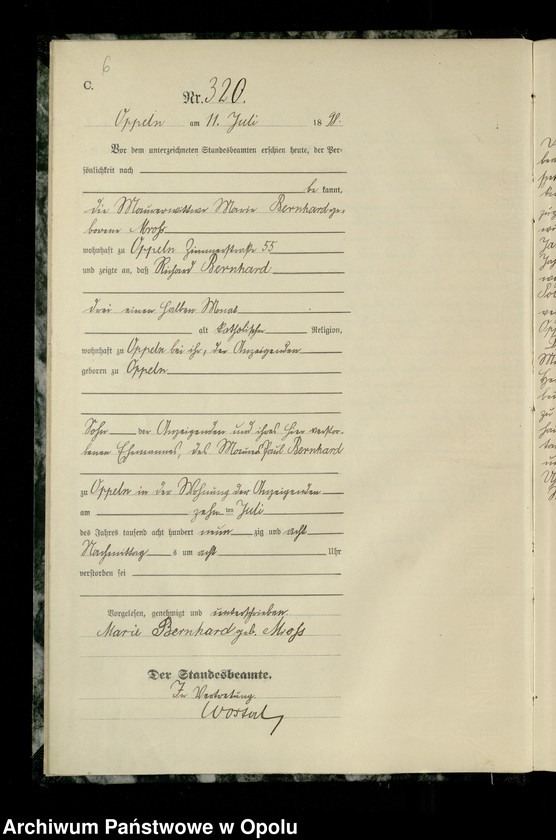 6
C.
Nr. 320.
Oppeln am 11. Juli 1898.
Vor dem unterzeichneten Standesbeamten erschien heute, der Per-
sönlichkeit nach
be kannt,
die Maurerwittwe Marie Bernhard ge-
borene Mross
wohnhaft zu Oppeln Zimmerstraße 55
und zeigte an, daß Richard Bernhard
drei einen halben Monat
alt katholischer Religion,
wohnhaft zu Oppeln bei ihr, der Anzeigenden
geboren zu Oppeln
Sohn der Anzeigenden und ihres hier verstor-
benen Ehemannes, des Maurers Paul Bernhard
zu Oppeln in der Wohnung der Anzeigenden
am zehn ten Juli
des Jahres tausend acht hundert neun zig und acht
Nachmittag s um acht Uhr
verstorben sei
Vorgelesen, genehmigt und unterschrieben
Marie Bernhard geb. Mross
Der Standesbeamte.
In Vertretung.
Wostal
Archiwum Państwowe w Opolu